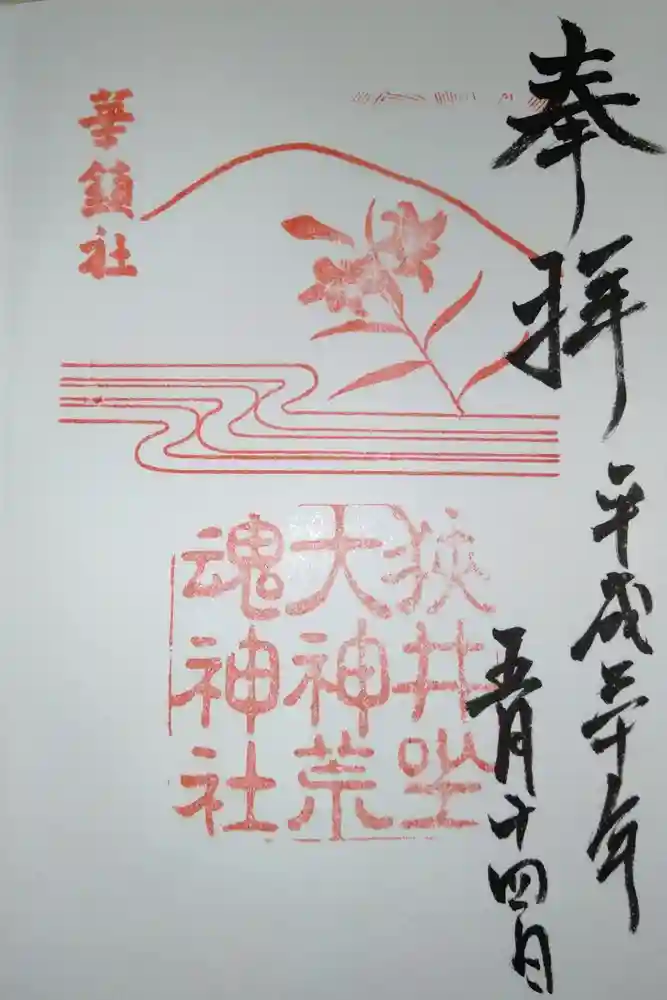 奉拝
平成三十年
五月十四日
狭井坐
大神荒
魂神社
華鎮社